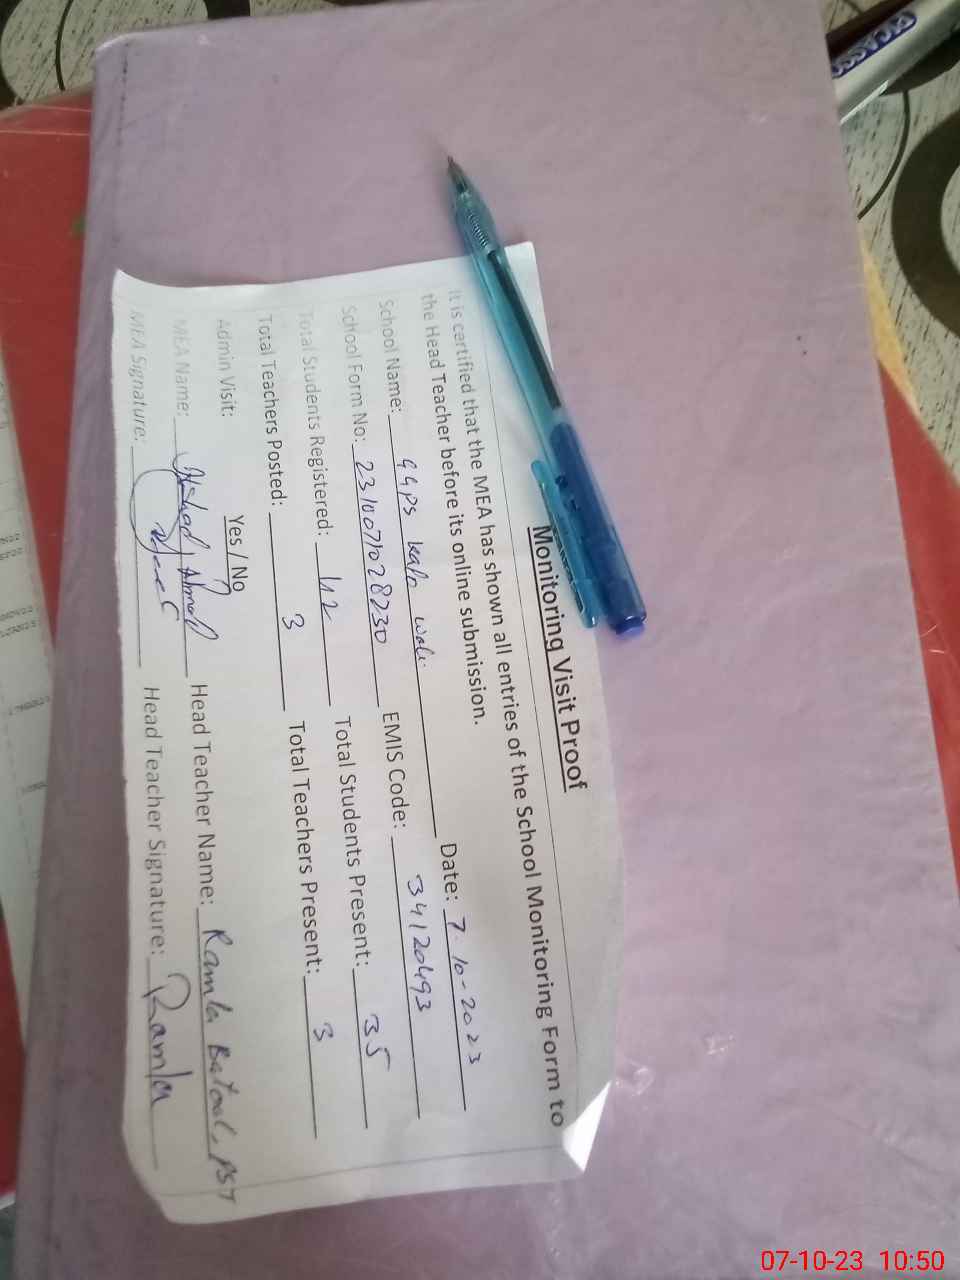 Monitoring Visit Proof
It is certified that the MEA has shown all entries of the School Monitoring Form to
the Head Teacher before its online submission.
School Name: GGPS wali Date: 7-10-2023
School Form No: 2310071028230 EMIS Code: 34120493
Total Students Registered: 42 Total Students Present: 35
Total Teachers Posted: 3 Total Teachers Present: 3
Admin Visit: Yes / No
MEA Name: Ahmad Head Teacher Name: Ramla Batool, PST
MEA Signature: Head Teacher Signature: Ramla
PICASSO
07-10-23 10:50